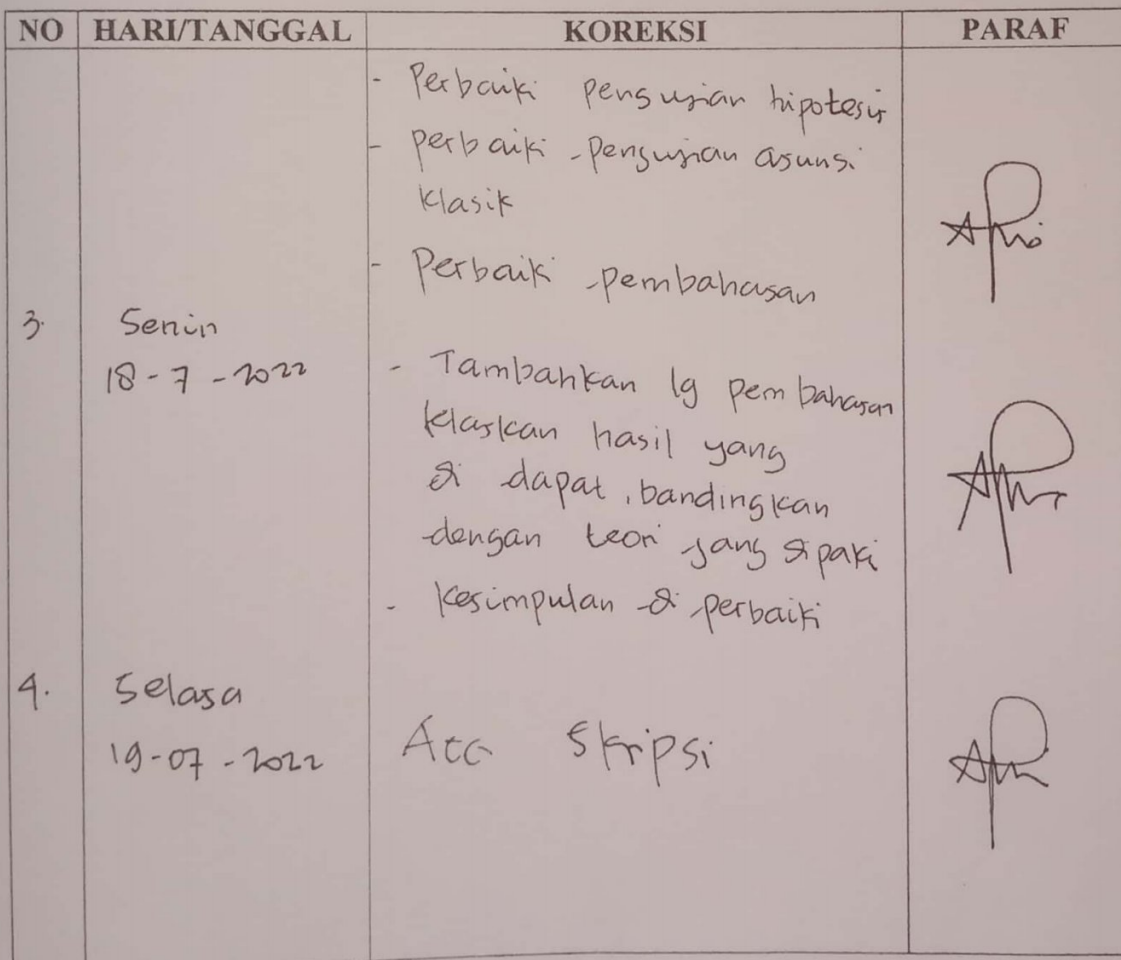 NO HARI/TANGGAL KOREKSI PARAF
- Perbaiki pengujian hipotesis
- perbaiki pengujian asunsi
klasik
- Perbaiki pembahasan
3. Senin
18-7-2022
- Tambahkan lg pembahasan
jelaskan hasil yang
di dapat, bandingkan
dengan teori yang dipaki
- Kesimpulan di perbaiki
4. Selasa
19-07-2022 Acc Skripsi